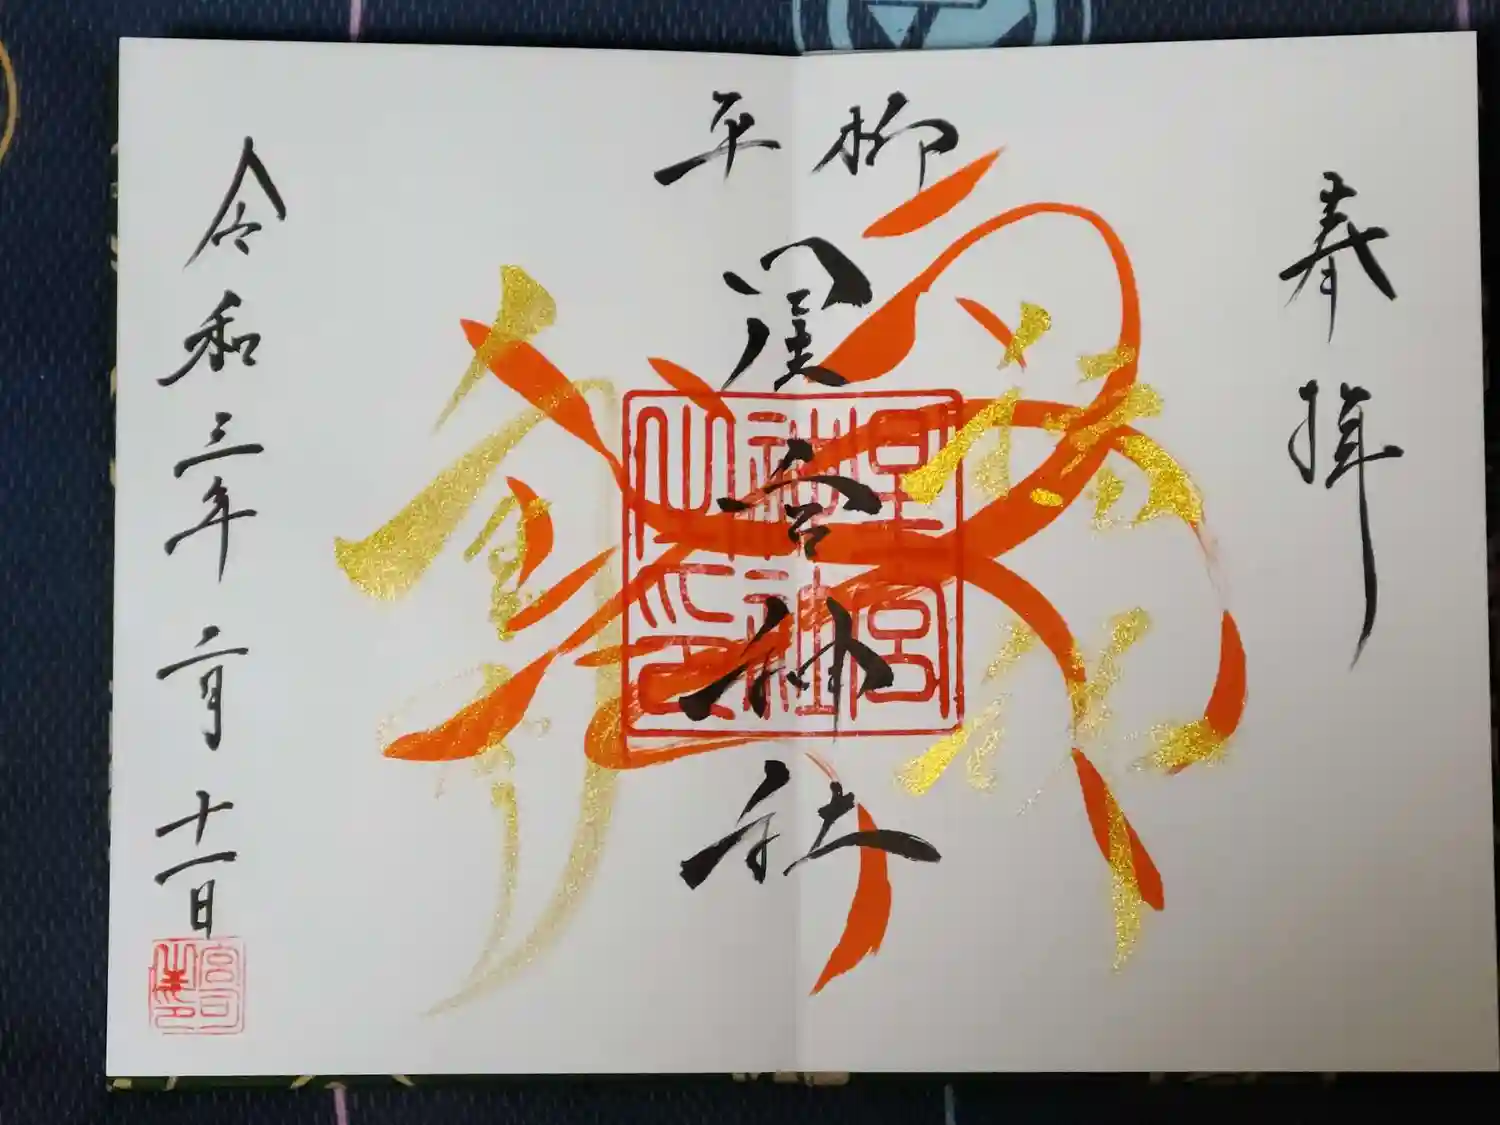 奉拝
平柳
星宮神社
星宮神社之印
令和三年二月十一日
宮司之印